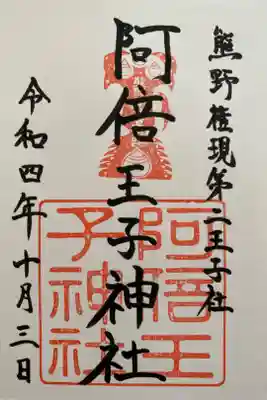 熊野権現第二王子社
阿倍王子神社
令和四年十月三日
阿倍王
子神社